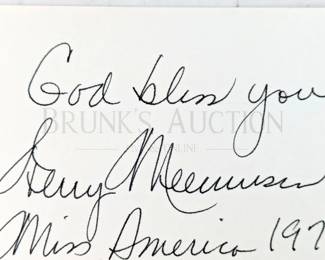 God bless you
BRUNK'S AUCTION
ONLINE
Terry Meeuwsen
Miss America 197